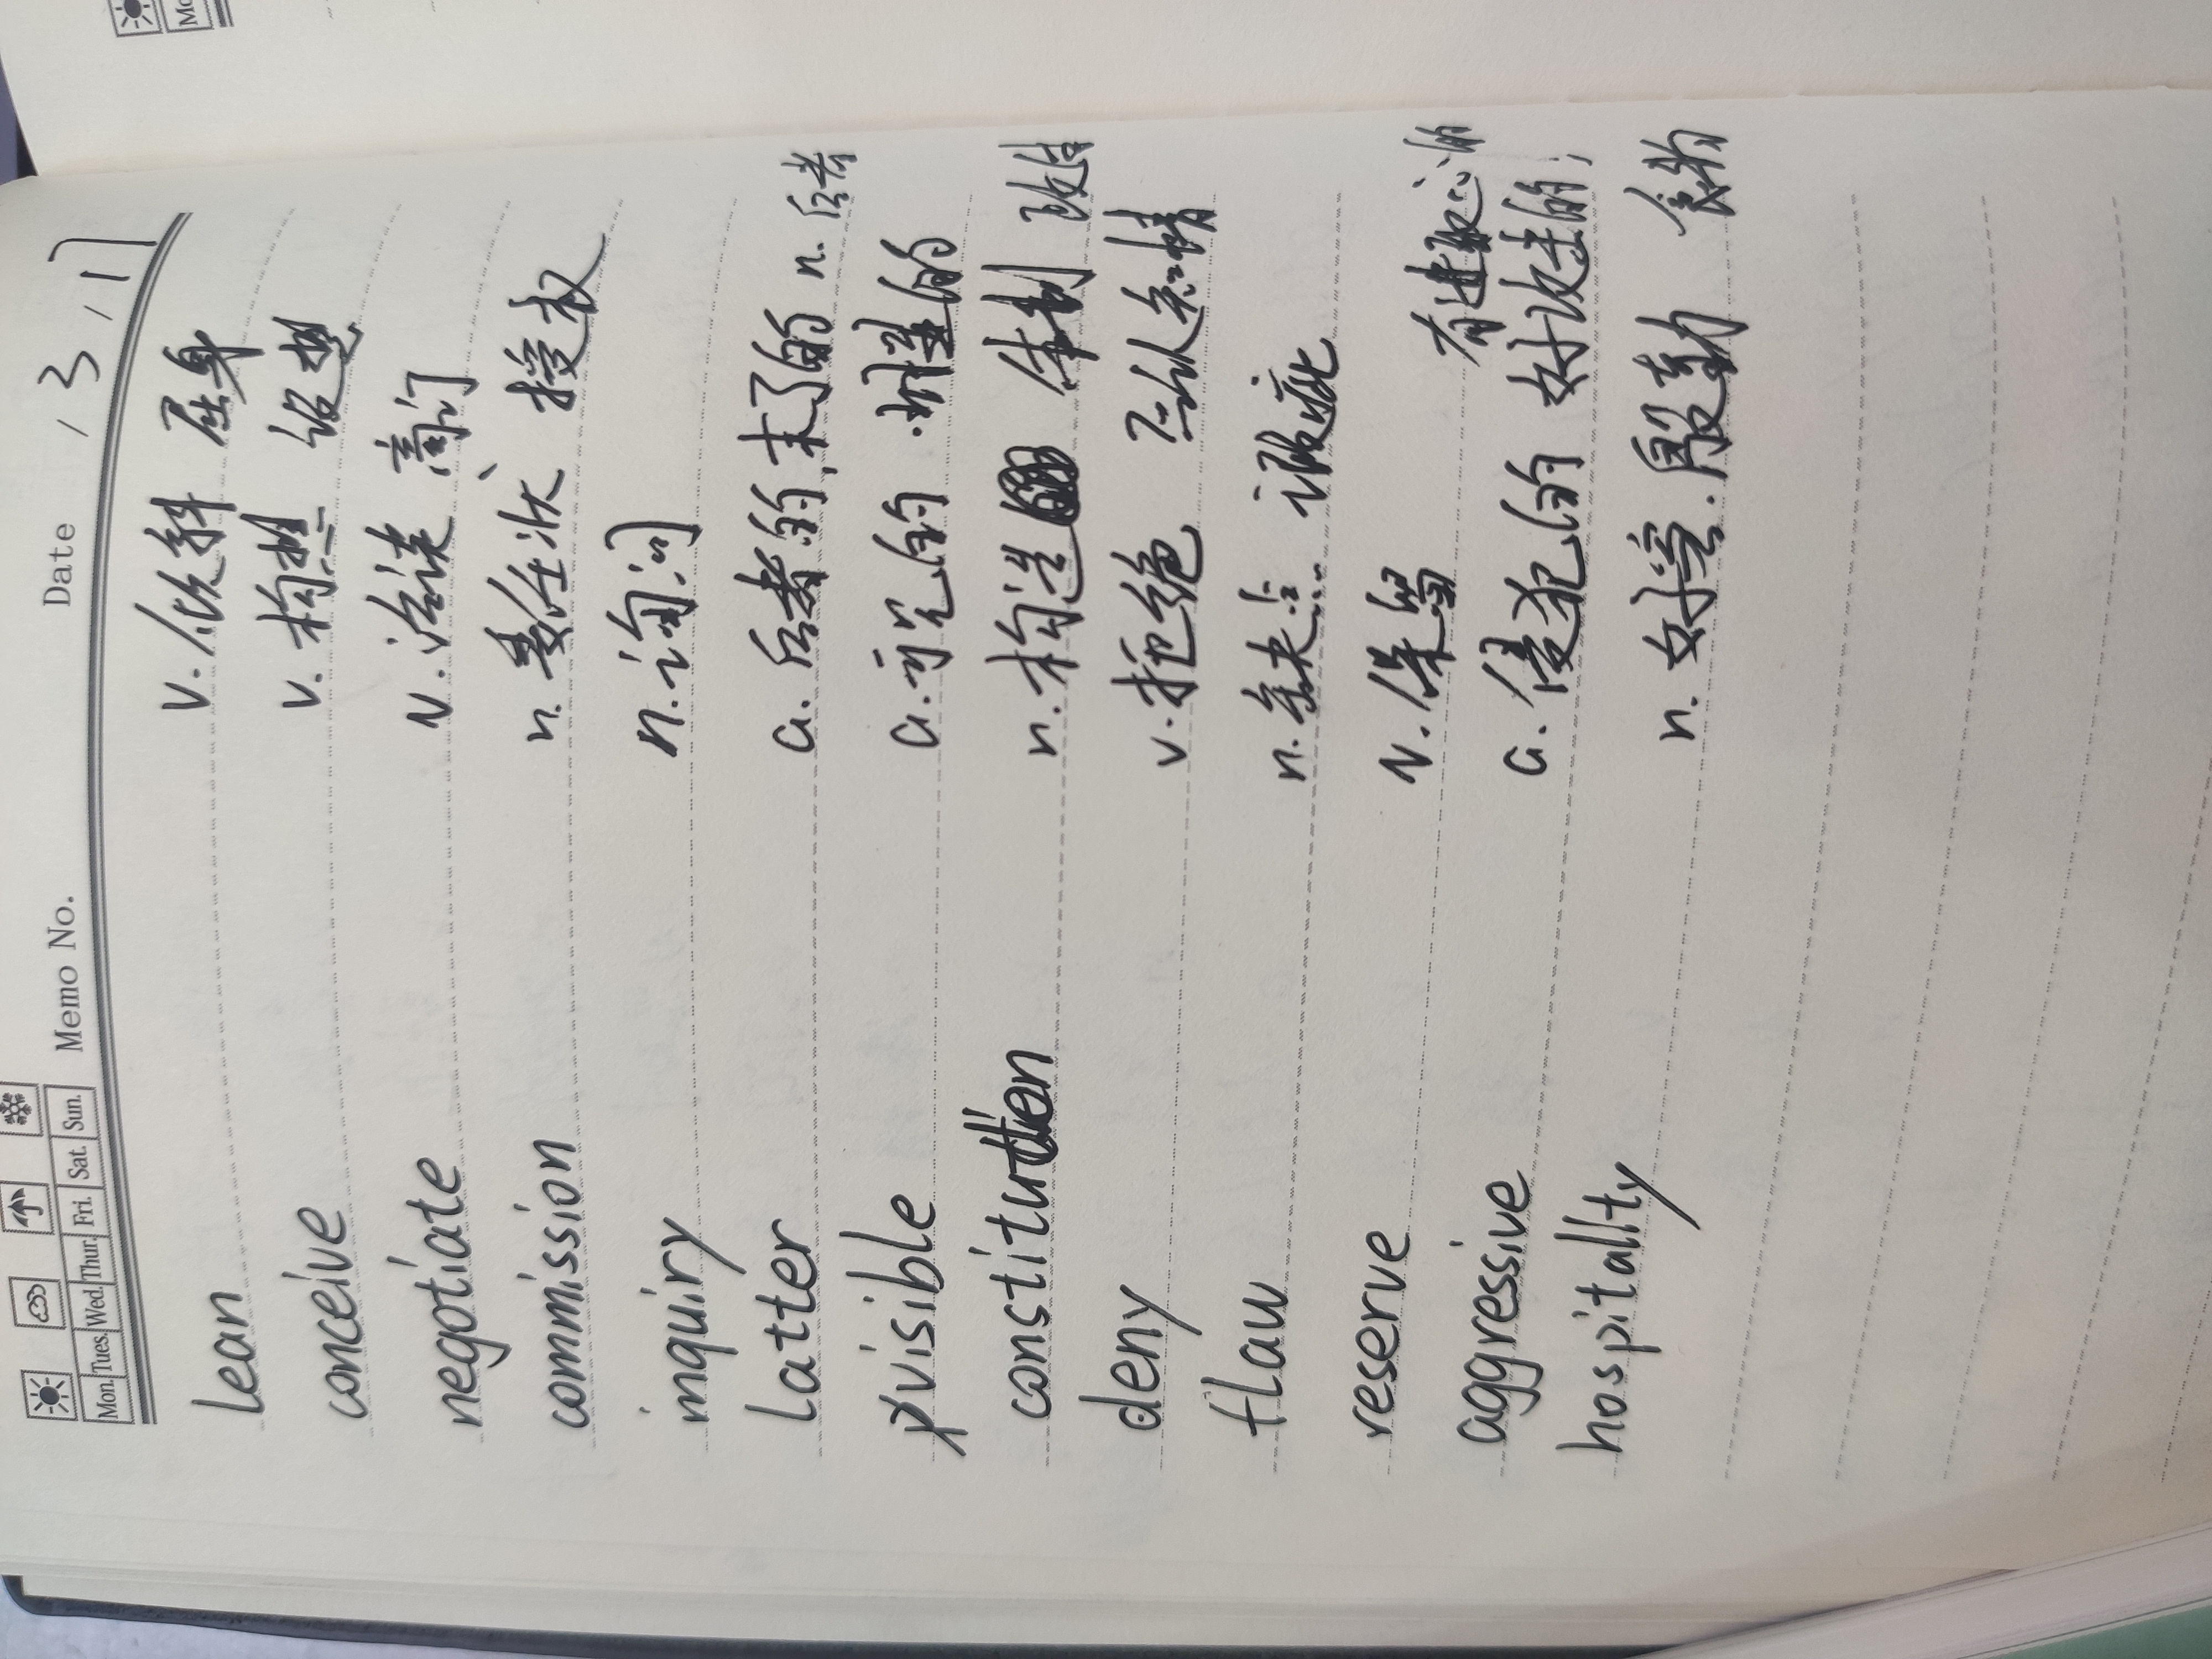 Mon. Tues. Wed. Thur. Fri. Sat. Sun. Memo No. Date / 3 / 17
lean v. 倾斜 屈身
conceive v. 构想 设想
negotiate v. 洽谈 商讨
commission n. 委任状、授权
inquiry n. 询问
latter a. 后者的,末了的 n. 后者
visible a. 可见的
constitution n. 构造 体制 政体
deny v. 拒绝
flaw n. 缺点 瑕疵
reserve v. 保留
有进取心的
aggressive a. 侵犯的 好攻击的;
hospitality n. 好客.殷勤